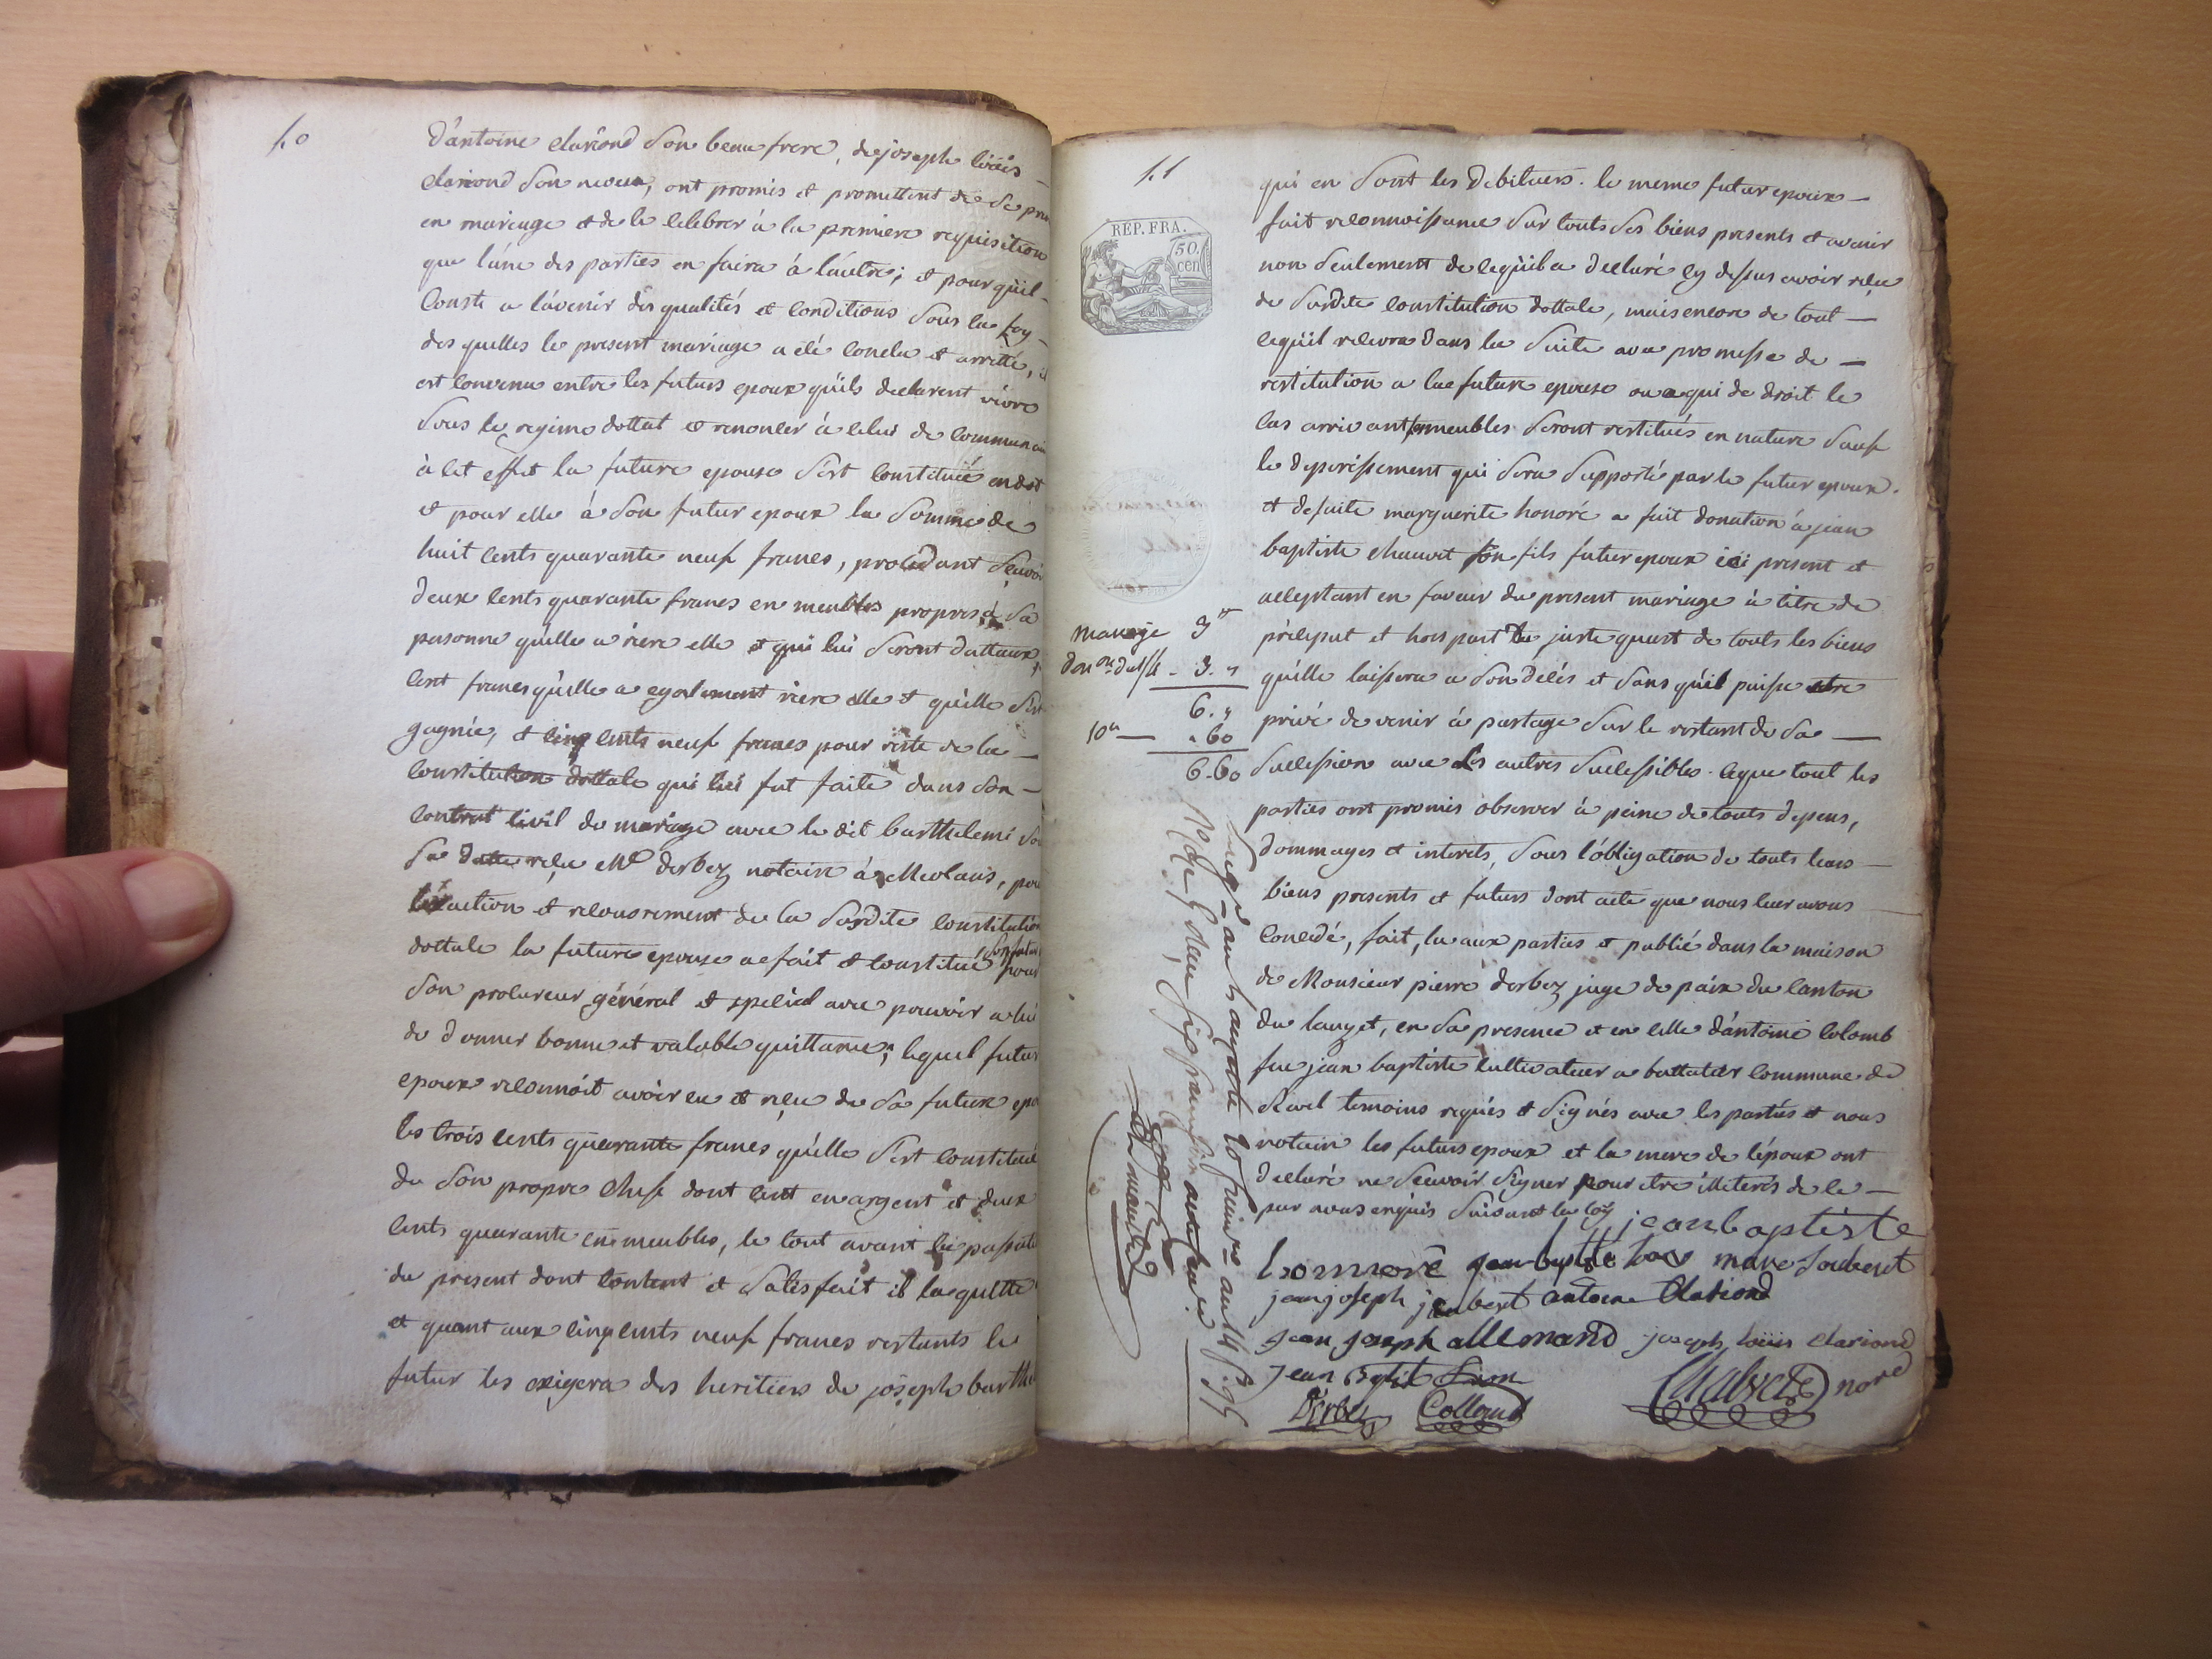 50
d'antoine clariond son beau frere, de joseph loüis
clariond son neveu, ont promis et promettent de se
en mariage et de le celebrer à la premiere requisition
que l'une des parties en faira à l'autre; et pour qu'il
conste a l'avenir des qualités et conditions sous la foy
des quelles le present mariage a eté conclu et arretté, il
est convenu entre les futurs epoux qu'ils declarent vivre
sous le regime dottal et renoncer à celui de
à cet effet la future epouse s'est constituée en dot
et pour elle à son futur epoux la somme de
huit cents quarante neuf francs, procedant
deux cents quarante francs en meubles propres à sa
personne qu'elle a riere elle et qui lui seront dottaux,
cent francs qu'elle a egalement riere elle et qu'elle s'est
gagnée, et cinq cents neuf francs pour reste de la
constitution dottale qui lui fut faite dans son
contrat civil de mariage avec le dit barthelemi
sa datte reçu Me derbez notaire à Meolans, pour
l'exaction et recouvrement de la susdite constitution
dottale la future epouse a fait et constitué son futur pour
son procureur général et special avec pouvoir a lui
de donner bonne et valable quittance; lequel futur
epoux reconnoit avoir eu et reçu de sa future
les trois cents quarante francs qu'elle s'est constitué
de son propre chef dont cent en argent et deux
cents quarante en meubles, le tout avant
du present dont content et satisfait il la quitte
et quant aux cinq cents neuf francs restants le
futur les exigera des heritiers de joseph
51
REP. FRA.
50.
cen
qui en sont les debiteurs. le meme futur epoux
fait reconnoissance sur touts ses biens presents et avenir
non seulement de ce qu'il a declaré cy dessus avoir reçu
de susdite constitution dottale, mais encore de tout
ce qu'il recevra dans la suite avec promesse de
restitution a la future epouse ou a qui de droit le
cas arrivant les meubles seront restitués en nature sauf
le deperissement qui sera supporté par le futur epoux.
et de suite marguerite honoré a fait donation à jean
baptiste chauvet son fils futur epoux ici present et
acceptant en faveur du present mariage à titre de
préciput et hors part le juste quart de touts les biens
qu'elle laissera a son décés et sans qu'il puisse etre
privé de venir à partage sur le restant de sa
succession avec les autres successibles. ce que tout les
parties ont promis observer à peine de touts depens,
dommages et interets, sous l'obligation de touts leurs
biens presents et futurs dont acte que nous leur avons
concedé, fait, lu aux parties et publié dans la maison
de Monsieur pierre derbez juge de paix du canton
du lauzet, en sa presence et en celle d'antoine colomb
feu jean baptiste cultivateur a commune de
Revel temoins requis et signés avec les parties et nous
notaire les futurs epoux et la mere de l'époux ont
declaré ne sçavoir signer pour etre illeterés de ce
par nous enquis suivant la loy
mariage 3
6.
10e .60
6.60
jean baptiste
honnoré
jean joseph jaubert antoine Clariond
jean joseph allemand joseph loüis clariond
Derbez Collomb
nore